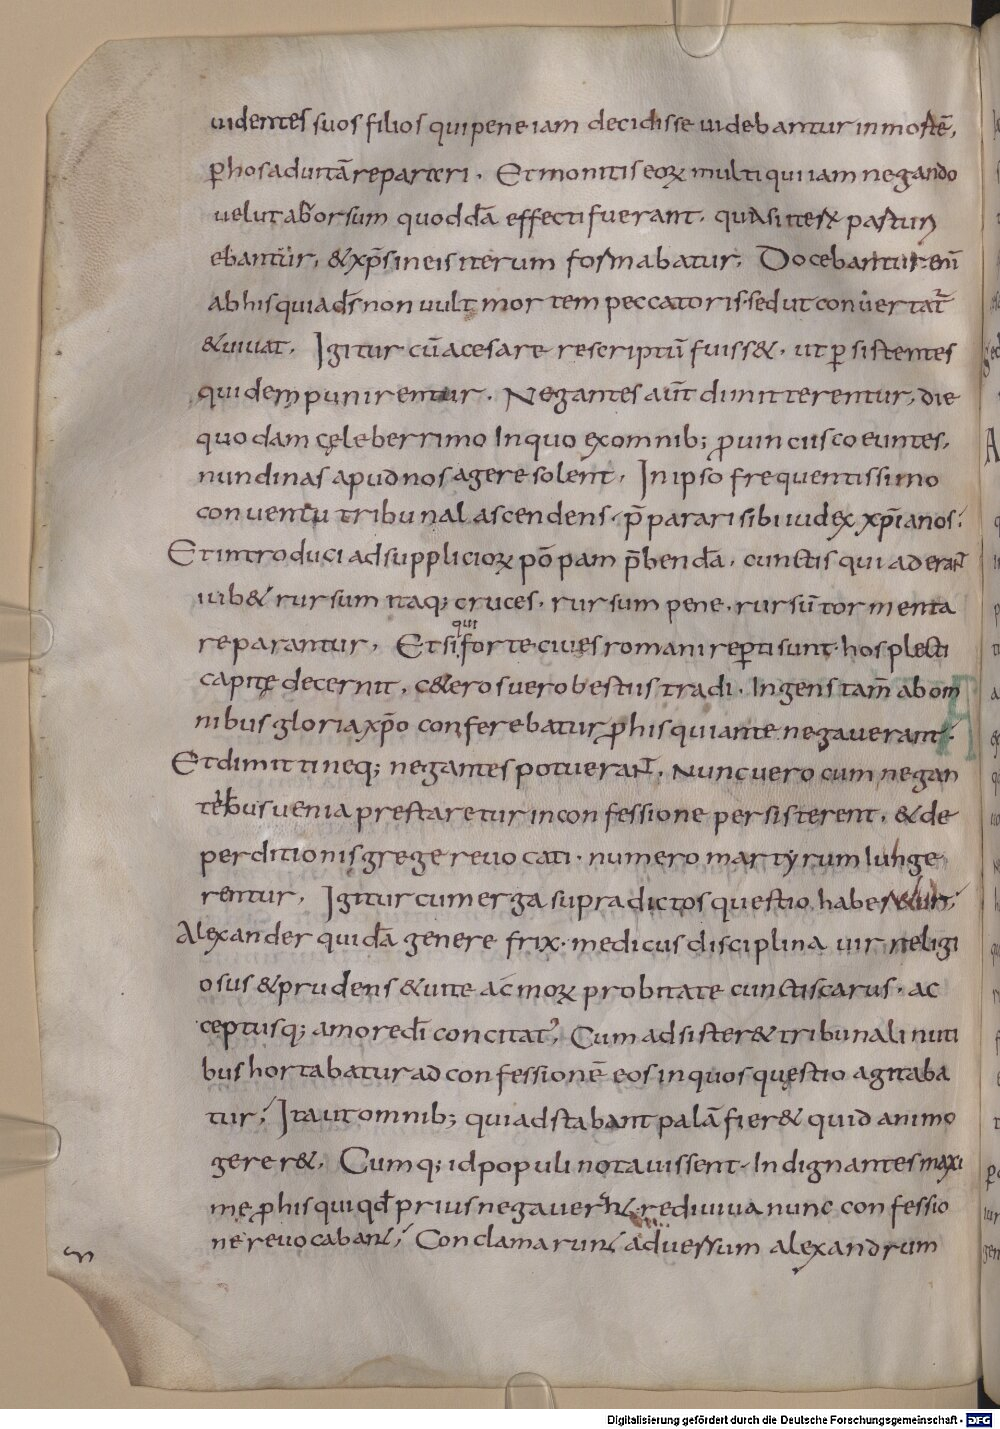 uidentes suos filios qui pene iam decidisse uidebantur in mortē,
ꝑ hos ad uitā reparari. Et monitis eoꝝ multi qui iam negando
uelut aborsum quoddā effecti fuerant. quasi iterꝝ partur
ebantur, & xp̄s in eis iterum formabatur. Docebantur enī
ab his quia d̄s non uult mortem peccatoris sed ut conuertat᷑
& uiuat. Igitur cū a cesare rescriptū fuiss&. ut ꝑsistentes
quidem punirentur. Negantes aūt dimitterentur, die
quodam celeberrimo In quo ex omnib; ꝓuinciis coeuntes,
nundinas apud nos agere solent. In ipso frequentissimo
conuentu tribunal ascendens. p̄parari sibi iudex xp̄ianos.
Et introduci ad supplicioꝝ pōpam p̄bendā. cunctis qui aderant
iub& rursum itaq; cruces. rursum pene. rursū tormenta
reparantur. Et si qui forte ciues romani reꝑti sunt. hos plecti
capite decernit. c&eros uero bestiis tradi. Ingens tam̄ ab om
nibus gloria xp̄o conferebatur ꝓ his qui ante negauerant.
Et dimitti neq; negantes potuerant. Nunc uero cum negan
tibus uenia prestaretur in confessione persisterent. & de
perditionis grege reuocati. numero martyrum iunge
rentur. Igitur cum erga supradictos questio haberetur;
Alexander quidā genere frix. medicus disciplina uir religi
osus & prudens & uite ac moꝝ probitate cunctis carus. ac
ceptusq; amore dī concitat᷑. Cum adsister& tribunali nuti
bus hortabatur ad confessionē eos in quos questio agitaba
tur; Ita ut omnib; qui adstabant palā fier& quid animo
gerer&. Cumq; id populi notauissent. Indignantes maxi
me ꝓ his qui qd̄ prius negauerant. rediuiua nunc confessio
ne reuocabant; Conclamarunt aduersum alexandrum
Digitalisierung gefördert durch die Deutsche Forschungsgemeinschaft - DFG